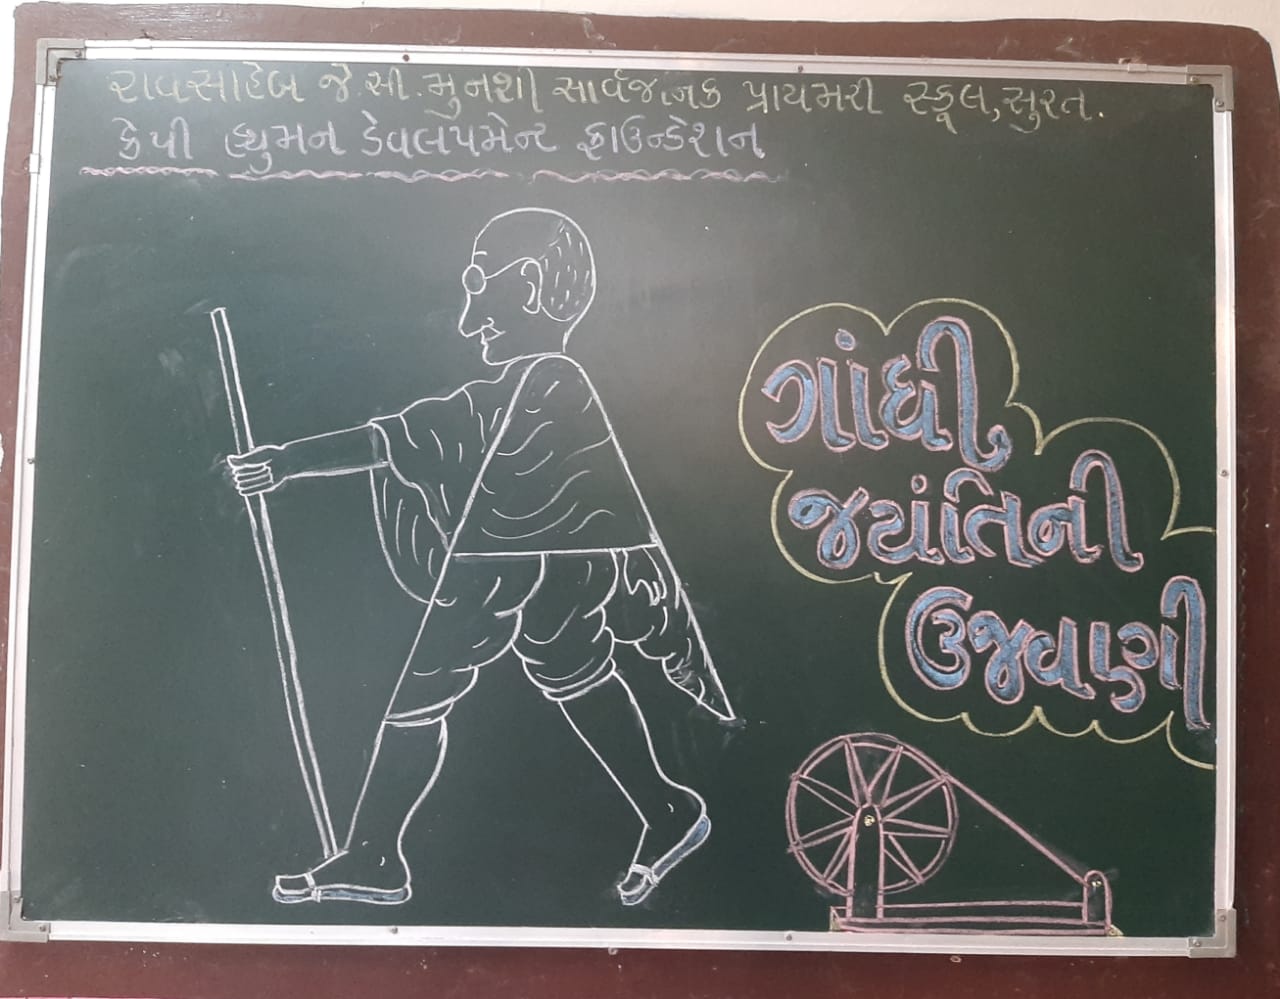 રાવસાહેબ જે.સી.મુનશી સાર્વજનિક પ્રાયમરી સ્કૂલ,સુરત.
કેપી હ્યુમન ડેવલપમેન્ટ ફાઉન્ડેશન
ગાંધી
જયંતિની
ઉજવાણી